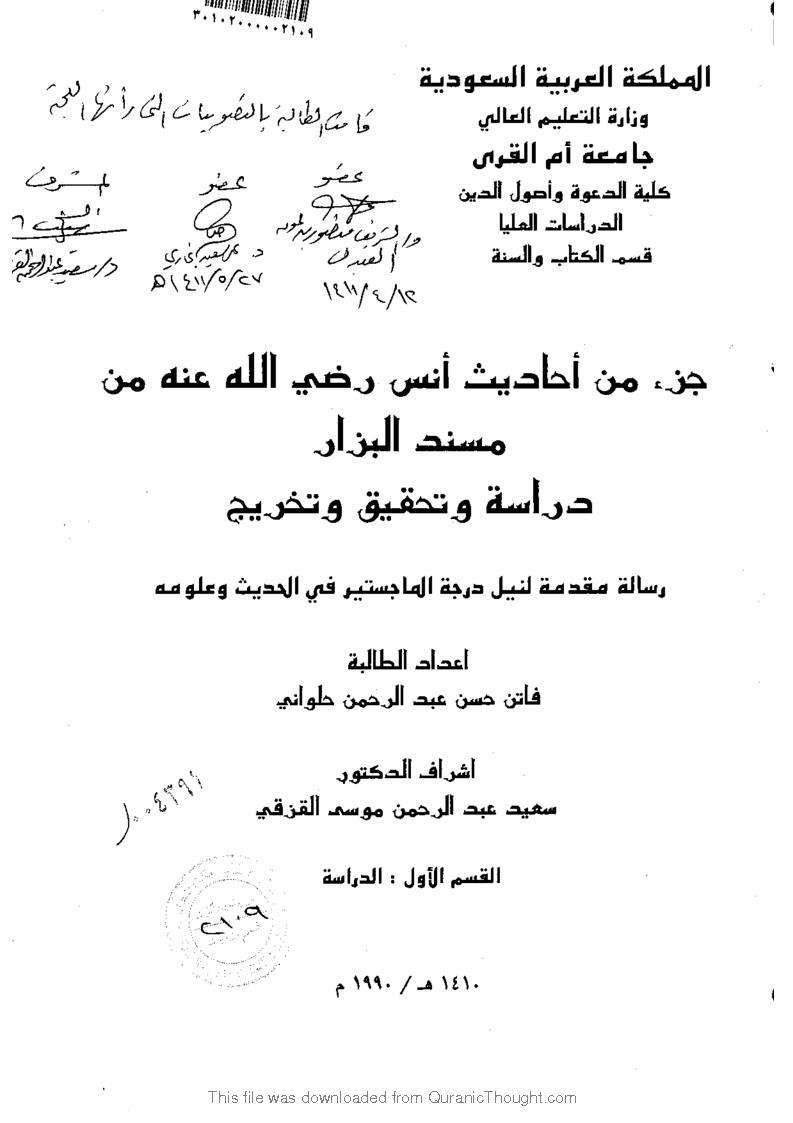 ٣٠١٠٢٠٠٠٠٠٢١٠٩
المملكة العربية السعودية
وزارة التعليم العالي
جامعة أم القرى
كلية الدعوة وأصول الدين
الدراسات العليا
قسم الكتاب والسنة
قامت الطالبة بالتصويبات التي رأتها اللجنة
عضو
عضو
المشرف
١٤١١/٥/٢٧ه
جزء من أحاديث أنس رضي الله عنه من
مسند البزار
دراسة وتحقيق وتخريج
رسالة مقدمة لنيل درجة الماجستير في الحديث وعلومه
اعداد الطالبة
فاتن حسن عبد الرحمن حلواني
اشراف الدكتور
سعيد عبد الرحمن موسى القزقي
القسم الأول : الدراسة
٢١٠٩
١٤١٠ هـ / ١٩٩٠ م
This file was downloaded from QuranicThought.com